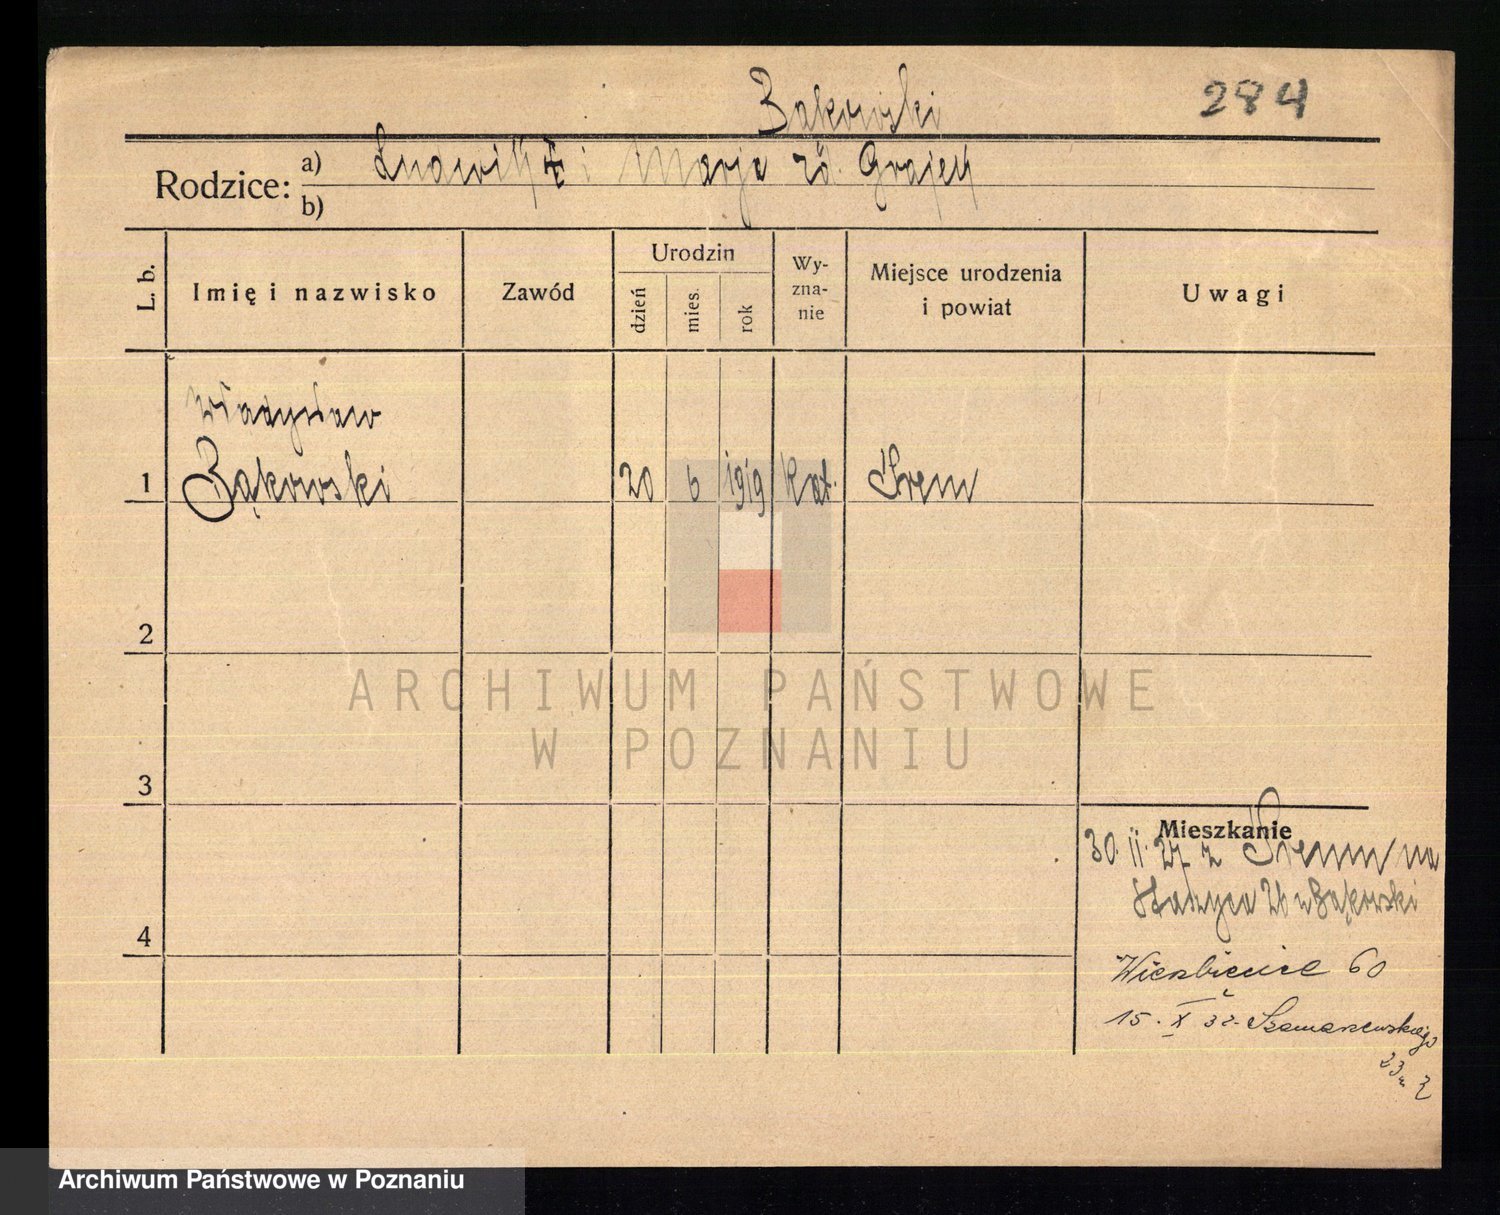 Bąkowski
284
Rodzice:
a) Ludwik † i Marja zd. Grajek
b)
L. b.
Imię i nazwisko
Zawód
Urodzin
dzień
mies.
rok
Wy-
zna-
nie
Miejsce urodzenia
i powiat
Uwagi
Władysław
1 Bąkowski 20 6 1919 kat. Śrem
2
3
4
Mieszkanie
30. 11. 27 z Śremu na
26 u Bąkowski
Wierzbięcice 60
15. X 32. Szamarzewskiego
23
ARCHIWUM PAŃSTWOWE
W POZNANIU
Archiwum Państwowe w Poznaniu